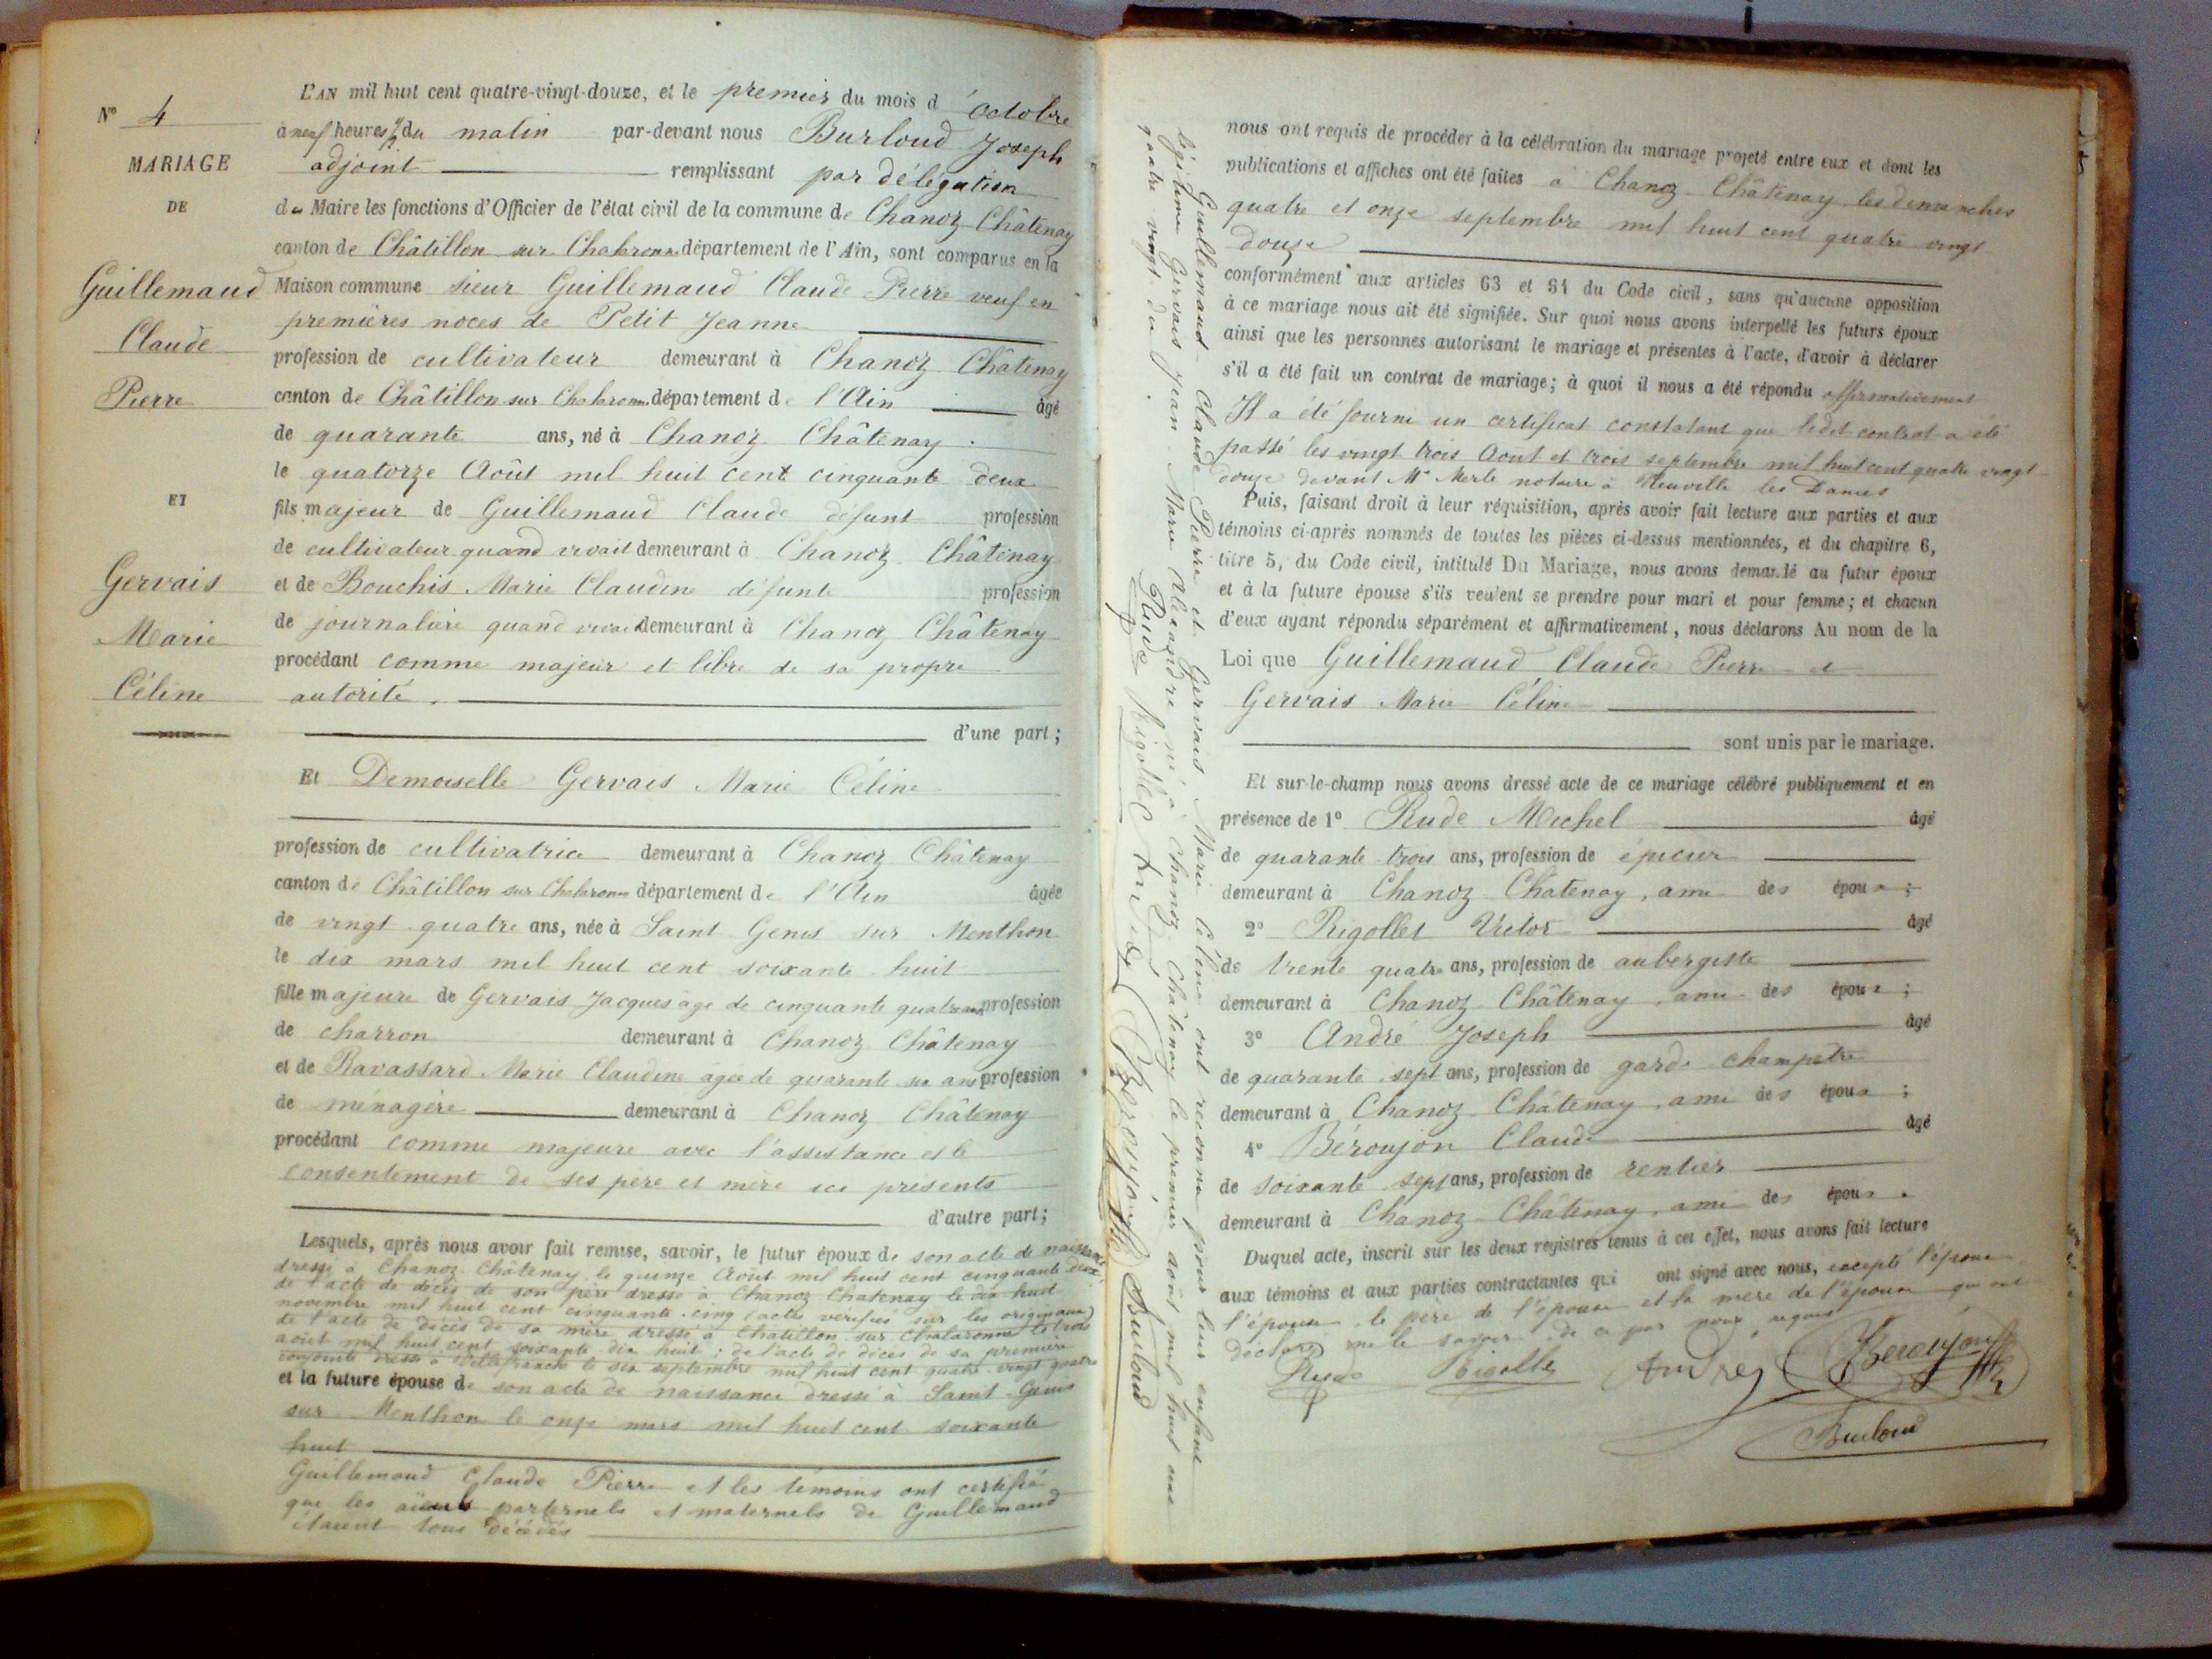 N° 4
MARIAGE
DE
Guillemaud
Claude
Pierre
ET
Gervais
Marie
Céline
L'AN mil huit cent quatre-vingt-douze, et le premier du mois d'octobre
à neuf heures 1/2 du matin par-devant nous Burloud Joseph
adjoint remplissant par délégation
du Maire les fonctions d'Officier de l'état civil de la commune de Chanoz Châtenay
canton de Châtillon sur Chalaronne département de l'Ain, sont comparus en la
Maison commune sieur Guillemaud Claude Pierre veuf en
premières noces de Petit Jeanne
profession de cultivateur demeurant à Chanoz Châtenay
canton de Châtillon sur Chalaronne département de l'Ain âgé
de quarante ans, né à Chanoz Châtenay
le quatorze Août mil huit cent cinquante deux
fils majeur de Guillemaud Claude défunt profession
de cultivateur quand vivait demeurant à Chanoz Châtenay
et de Bouchis Marie Claudine défunte profession
de journalière quand vivait demeurant à Chanoz Châtenay
procédant comme majeur et libre de sa propre
autorité.
d'une part;
Et Demoiselle Gervais Marie Céline
profession de cultivatrice demeurant à Chanoz Châtenay
canton de Châtillon sur Chalaronne département de l'Ain âgée
de vingt quatre ans, née à Saint Genis sur Menthon
le dix mars mil huit cent soixante huit
fille majeure de Gervais Jacques âgé de cinquante quatre ans profession
de charron demeurant à Chanoz Châtenay
et de Ravassard Marie Claudine âgée de quarante six ans profession
de ménagère demeurant à Chanoz Châtenay
procédant comme majeure avec l'assistance et le
consentement de ses père et mère ici présents
d'autre part;
Lesquels, après nous avoir fait remise, savoir, le futur époux de son acte de naissance
dressé à Chanoz Châtenay le quinze Août mil huit cent cinquante deux,
de l'acte de décès de son père dressé à Chanoz Chatenay le dix huit
novembre mil huit cent cinquante cinq (actes vérifiés sur les originaux)
de l'acte de décès de sa mère dressé à Chatillon sur Chalaronne le trois
août mil huit cent soixante dix huit; de l'acte de décès de sa première
conjointe dressé à Villefranche le six septembre mil huit cent quatre vingt quatre
et la future épouse de son acte de naissance dressé à Saint Genis
sur Menthon le onze mars mil huit cent soixante
huit
Guillemaud Claude Pierre et les témoins ont certifié
que les aïeuls parternels et maternels de Guillemaud
étaient tous décédés
Guillemaud Claude Pierre et Gervais Marie Céline ont reconnu pour leur enfant
légitime Gervais Jean Marie Alexandre né à Chanoz Châtenay le premier août mil huit cent
quatre vingt dix.
Rude Rigollet André Béroujon Burloud
nous ont requis de procéder à la célébration du mariage projeté entre eux et dont les
publications et affiches ont été faites à Chanoz Châtenay les dimanches
quatre et onze septembre mil huit cent quatre vingt
douze
conformément aux articles 63 et 64 du Code civil, sans qu'aucune opposition
à ce mariage nous ait été signifiée. Sur quoi nous avons interpellé les futurs époux
ainsi que les personnes autorisant le mariage et présentes à l'acte, d'avoir à déclarer
s'il a été fait un contrat de mariage; à quoi il nous a été répondu affirmativement
Il a été fourni un certificat constatant que ledit contrat a été
passé les vingt trois Aout et trois septembre mil huit cent quatre vingt
douze devant Me Merle notaire à Neuville les Dames
Puis, faisant droit à leur réquisition, après avoir fait lecture aux parties et aux
témoins ci-après nommés de toutes les pièces ci-dessus mentionnées, et du chapitre 6,
titre 5, du Code civil, intitulé Du Mariage, nous avons demandé au futur époux
et à la future épouse s'ils veulent se prendre pour mari et pour femme; et chacun
d'eux ayant répondu séparément et affirmativement, nous déclarons Au nom de la
Loi que Guillemaud Claude Pierre et
Gervais Marie Céline
sont unis par le mariage.
Et sur-le-champ nous avons dressé acte de ce mariage célébré publiquement et en
présence de 1° Rude Michel âgé
de quarante trois ans, profession de épicier
demeurant à Chanoz Châtenay, ami des époux;
2° Rigollet Victor âgé
de trente quatre ans, profession de aubergiste
demeurant à Chanoz Châtenay, ami des époux;
3° André Joseph âgé
de quarante sept ans, profession de garde champêtre
demeurant à Chanoz Châtenay, ami des époux;
4° Béroujon Claude âgé
de soixante sept ans, profession de rentier
demeurant à Chanoz Châtenay, ami des époux.
Duquel acte, inscrit sur les deux registres tenus à cet effet, nous avons fait lecture
aux témoins et aux parties contractantes qui ont signé avec nous, excepté l'époux
l'épouse le père de l'épouse et la mère de l'épouse qui ont
déclaré ne le savoir de ce par nous requis
Rude Rigollet André Béroujon
Burloud